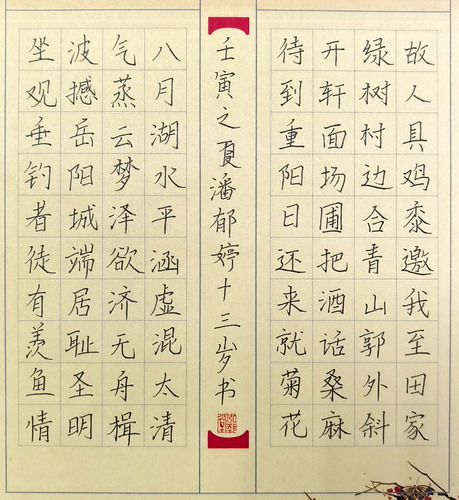 故人具鸡黍邀我至田家
绿树村边合青山郭外斜
开轩面场圃把酒话桑麻
待到重阳日还来就菊花
壬寅之夏潘郁婷十三岁书
八月湖水平涵虚混太清
气蒸云梦泽欲济无舟楫
波撼岳阳城端居耻圣明
坐观垂钓者徒有羡鱼情